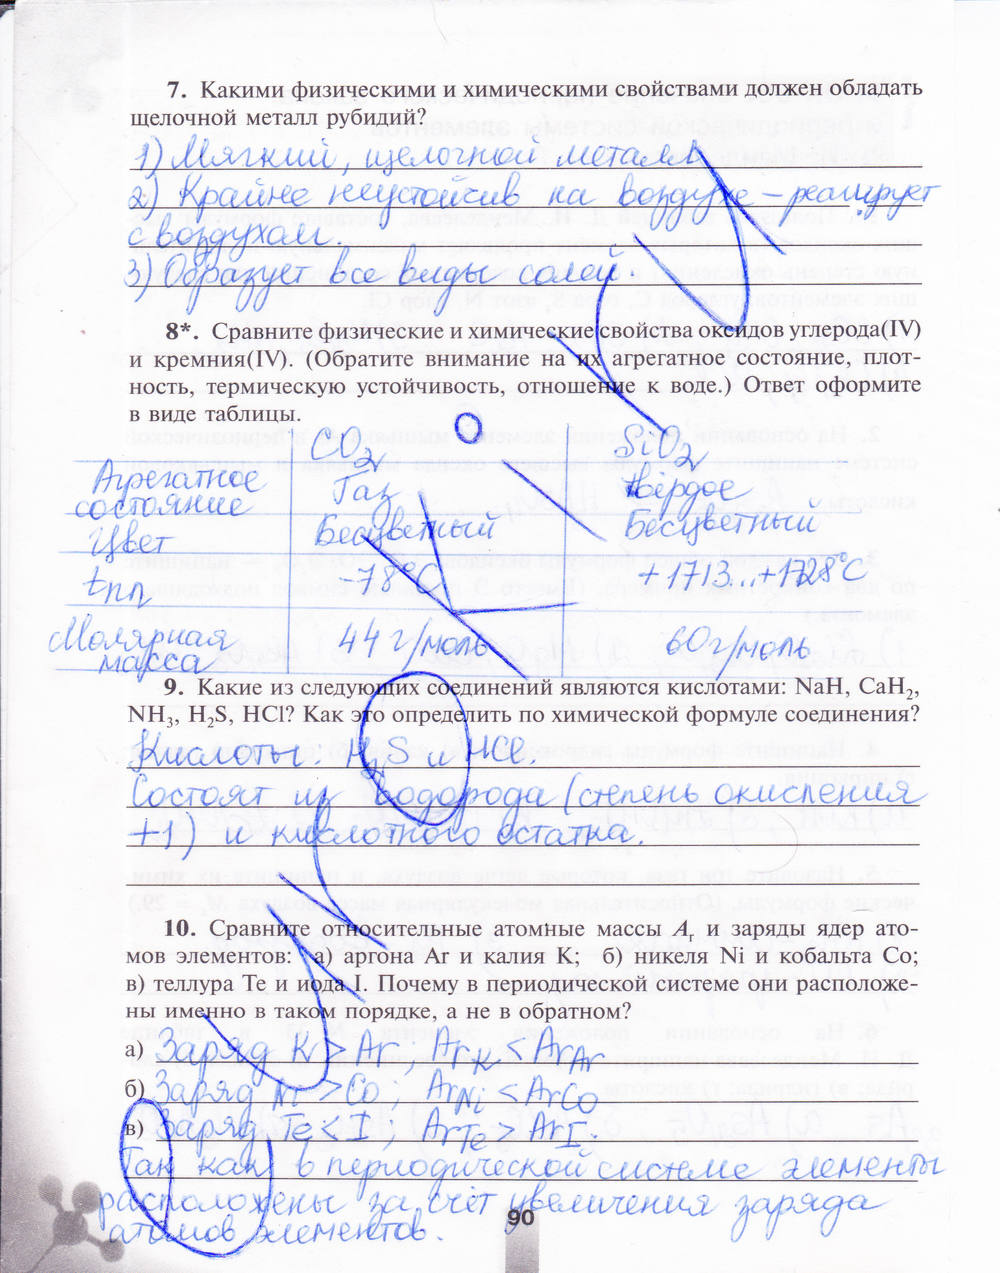 7. Какими физическими и химическими свойствами должен обладать
щелочной металл рубидий?
1) Мягкий, щелочной металл
2) Крайне неустойчив на воздухе – реагирует
с воздухом.
3) Образует все виды солей.
8*. Сравните физические и химические свойства оксидов углерода(IV)
и кремния(IV). (Обратите внимание на их агрегатное состояние, плот-
ность, термическую устойчивость, отношение к воде.) Ответ оформите
в виде таблицы.
CO₂ SiO₂
Агрегатное состояние Газ Твёрдое
Цвет Бесцветный Бесцветный
tпл –78°C +1713...+1728°C
Молярная масса 44 г/моль 60 г/моль
9. Какие из следующих соединений являются кислотами: NaH, CaH₂,
NH₃, H₂S, HCl? Как это определить по химической формуле соединения?
Кислоты: H₂S и HCl.
Состоят из водорода (степень окисления
+1) и кислотного остатка.
10. Сравните относительные атомные массы Ar и заряды ядер ато-
мов элементов: а) аргона Ar и калия K; б) никеля Ni и кобальта Co;
в) теллура Te и иода I. Почему в периодической системе они расположе-
ны именно в таком порядке, а не в обратном?
а) Заряд K > Ar, ArK < ArAr
б) Заряд Ni > Co; ArNi < ArCo
в) Заряд Te < I; ArTe > ArI.
Так как в периодической системе элементы
расположены за счёт увеличения заряда
атомов элементов.
90